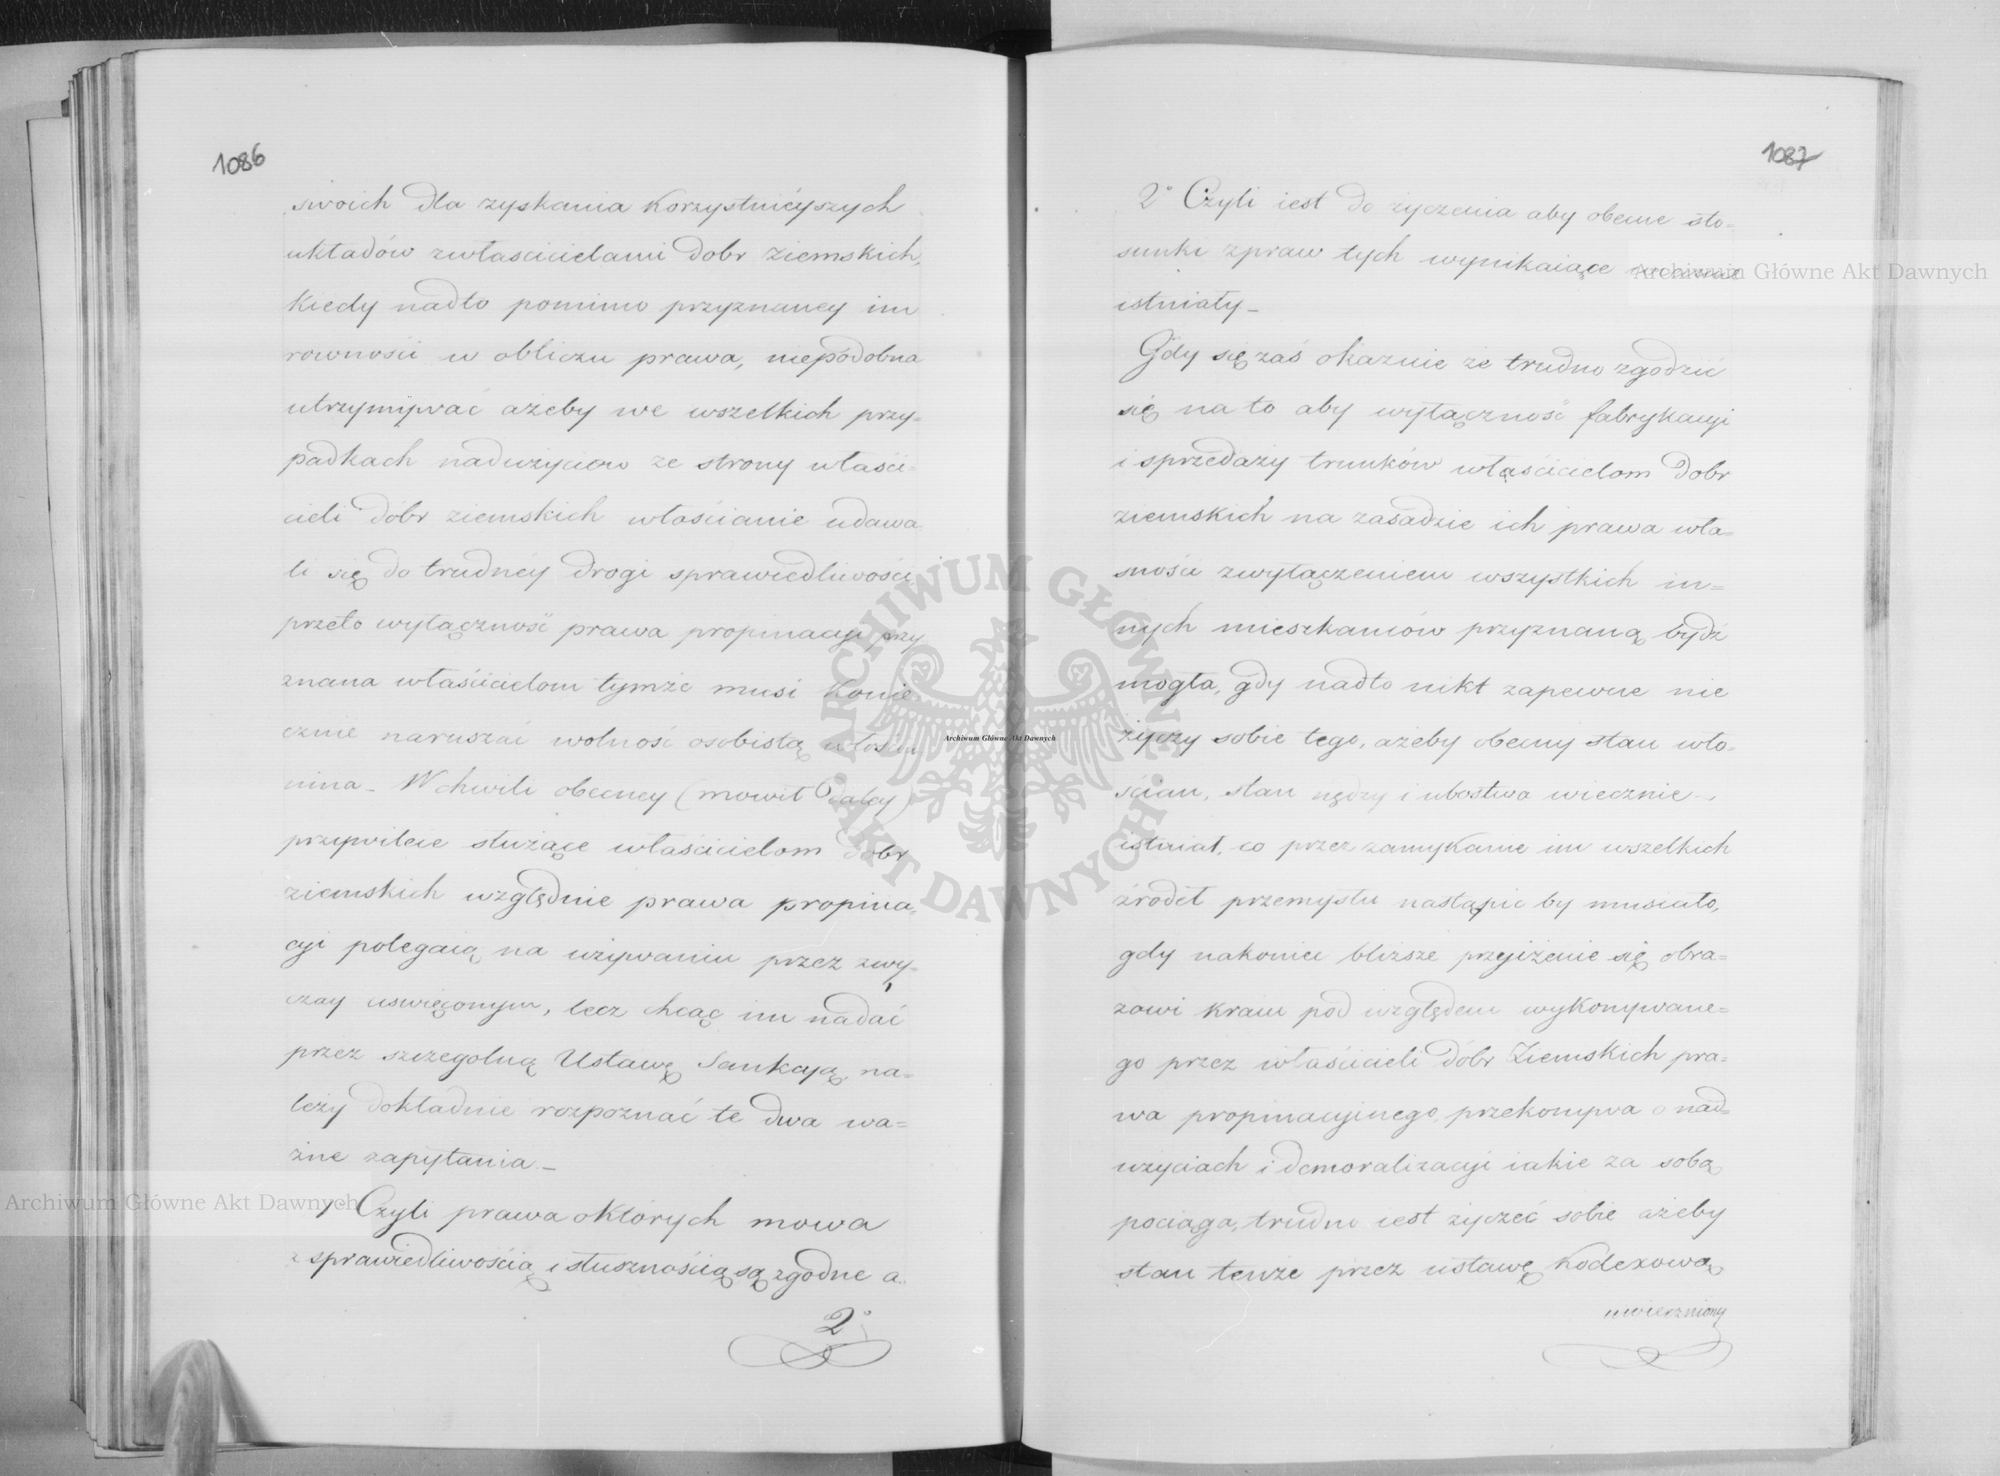 1086
swoich dla zyskania korzystnieyszych
układów zwłascicielami dobr ziemskich,
kiedy nadto pomimo przyznaney im
rownosci w obliczu prawa, niepodobna
utrzymywać ażeby we wszelkich przy-
padkach nadużyciow ze strony właści-
cieli dóbr ziemskich włościanie udawa
li się do trudnéy drogi sprawiedliwości,
przeto wyłączność prawa propinacyi przy
znana właścicielom tymże musi konie
cznie naruszać wolność osobistą włościa
nina – W chwili obecney (mowił daley)
przywileie służące właścicielom dobr
ziemskich względnie prawa propina-
cyi polegaią na używaniu przez zwy-
czay uswięconym, lecz chcąc im nadać
przez szczegolną Ustawę Sankcyą, na-
leży dokładnie rozpoznać te dwa wa-
żne zapytania –
1° Czyli prawa októrych mowa
z sprawiedliwością i słusznością są zgodne a.
2°
1087
2° Czyli iest do życzenia aby obecne sto-
sunki zpraw tych wynikaiące
istniały –
Gdy się zaś okazuie że trudno zgodzić
się na to aby wyłączność fabrykacyi
i sprzedaży trunków właścicielom dobr
ziemskich na zasadzie ich prawa wła-
sności zwyłączeniem wszystkich in-
nych mieszkancow przyznaną bydź
mogła, gdy nadto nikt zapewne nie
życzy sobie tego, ażeby obecny stan wło-
ścian, stan nędzy i ubostwa wiecznie
istniał, co przez zamykanie im wszelkich
źrodeł przemysłu nastąpić by musiało,
gdy nakoniec bliższe przyiżenie się obra-
zowi kraiu pod względem wykonywane-
go przez właścicieli dóbr Ziemskich pra-
wa propinacyinego, przekonywa o nad-
użyciach i demoralizacyi iakie za sobą
pociąga, trudno iest życzeć sobie ażeby
stan tenże przez ustawę Kodexową
uwieczniony
Archiwum Główne Akt Dawnych
Archiwum Główne Akt Dawnych
Archiwum Główne Akt Dawnych
ARCHIWUM GŁÓWNE AKT DAWNYCH